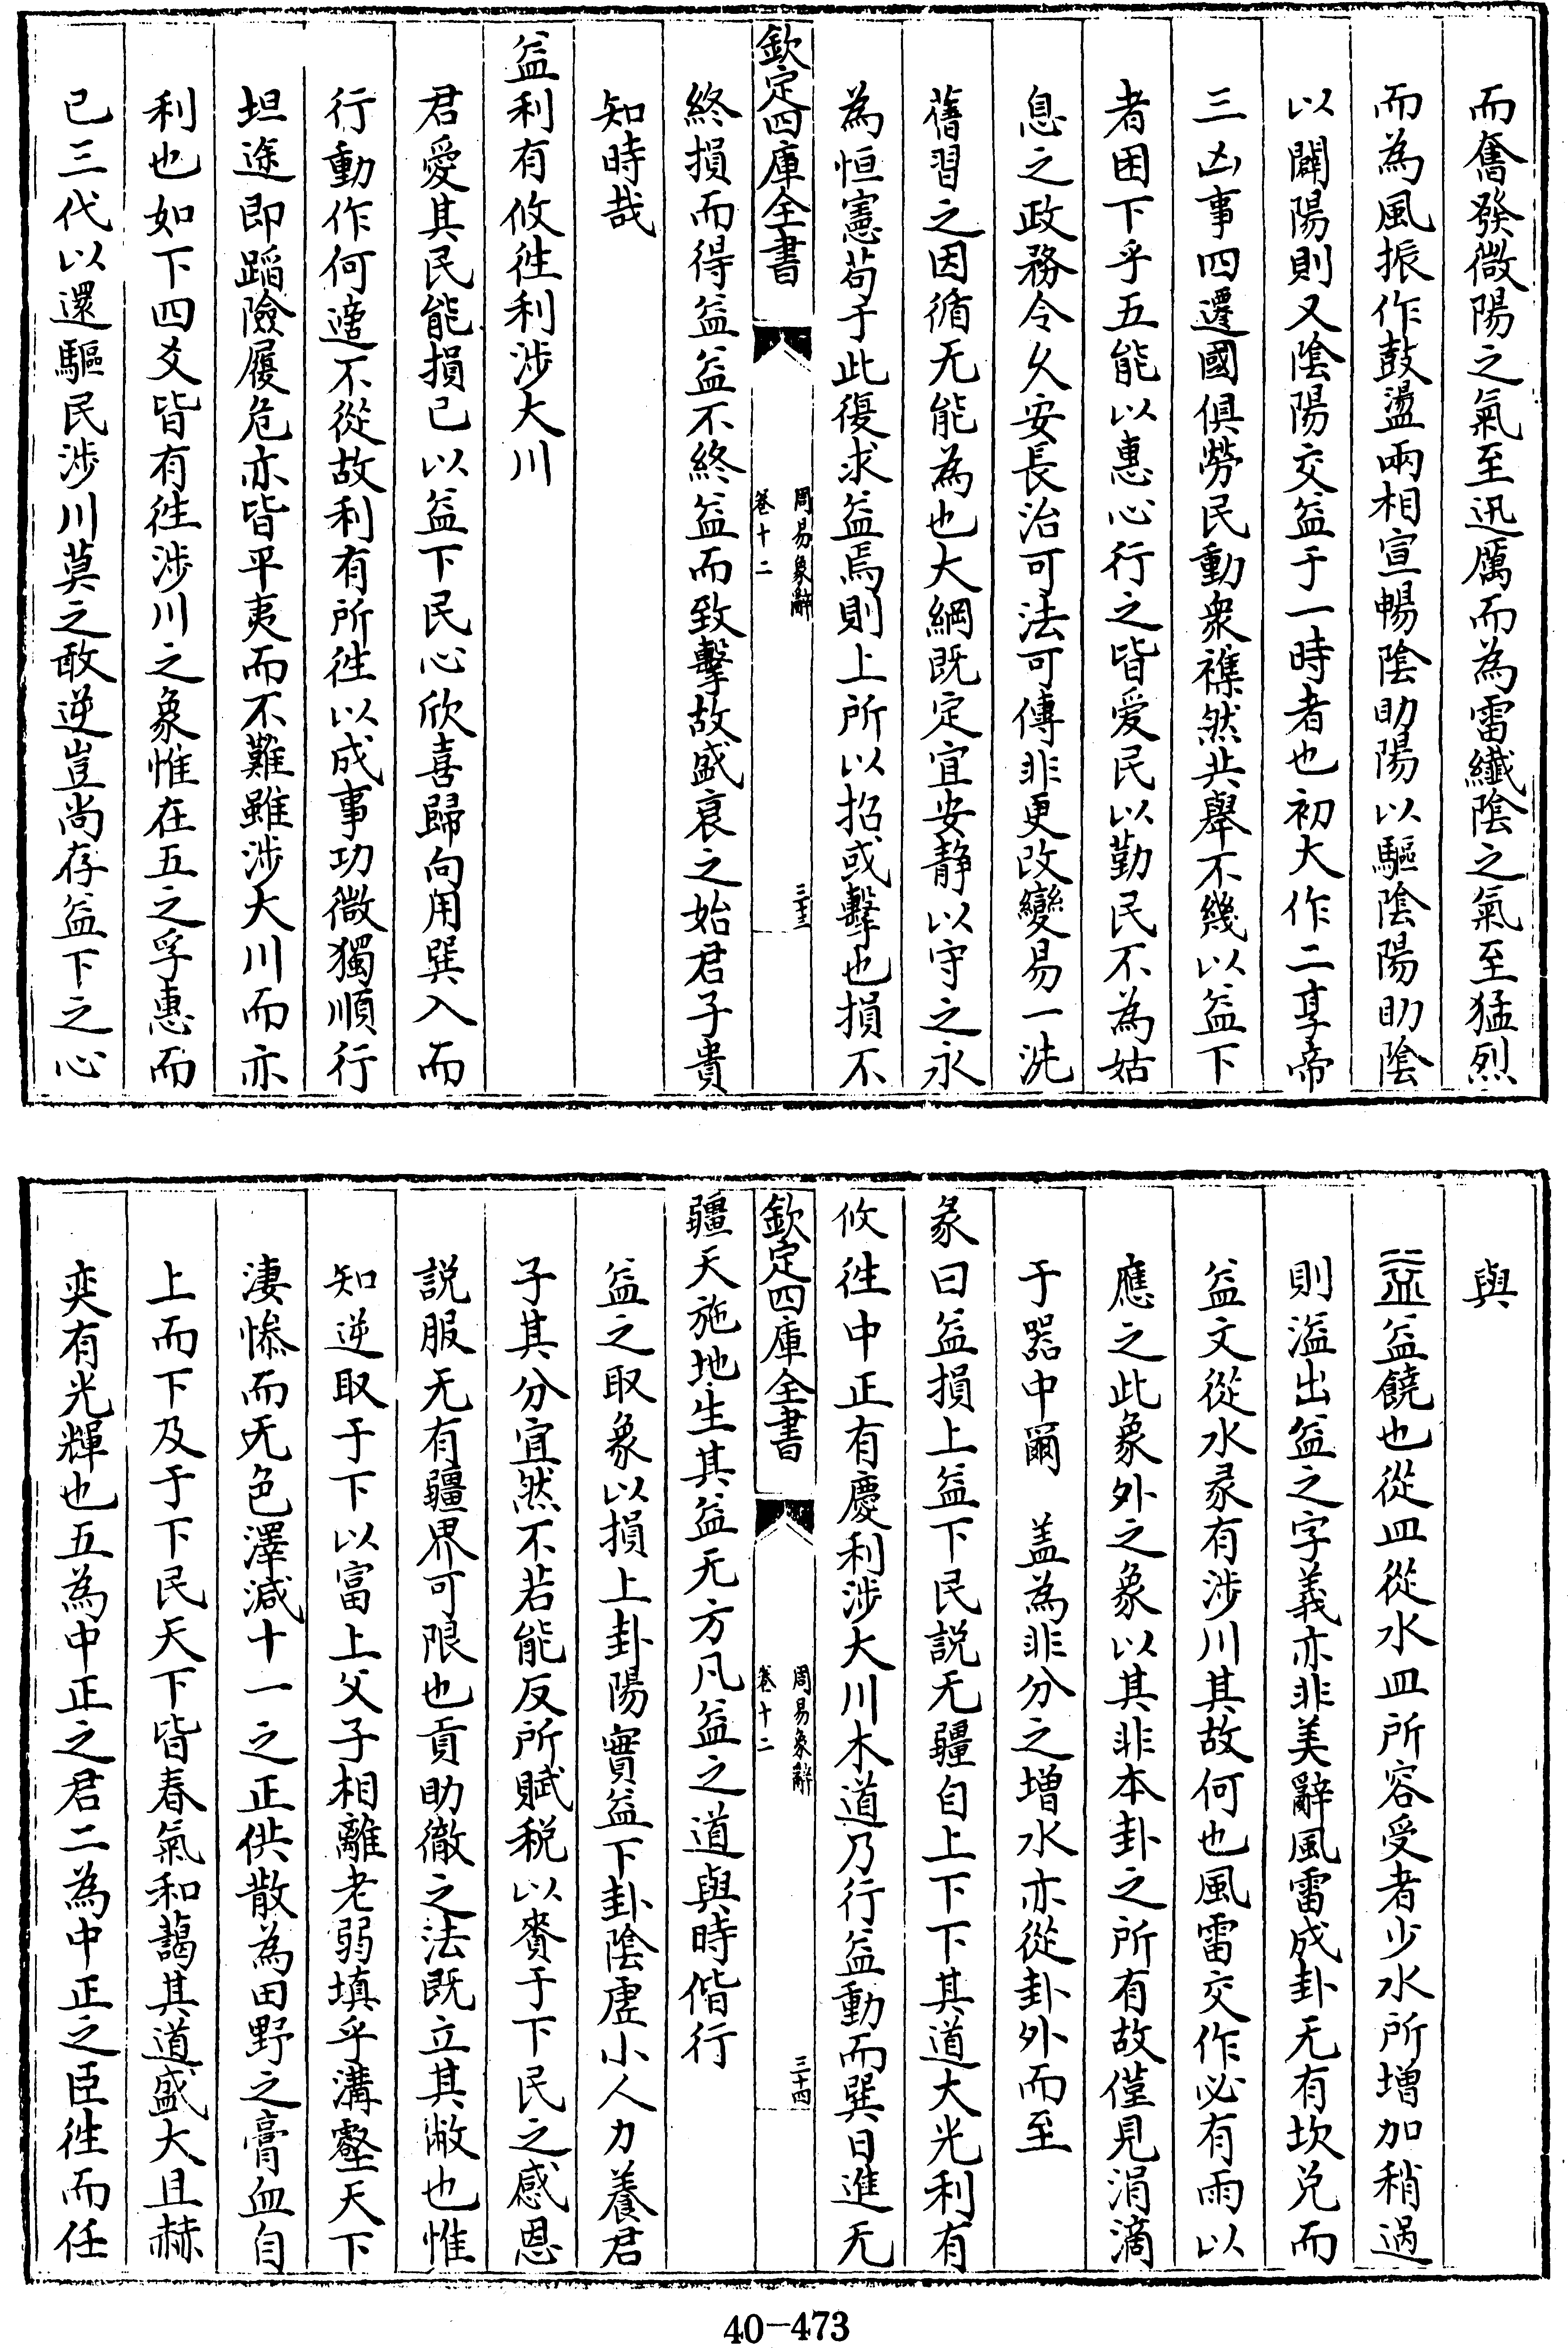 而奮發微陽之氣至迅厲而為雷纖陰之氣至猛烈
而為風振作鼓盪兩相宣暢陰助陽以驅陰陽助陰
以闢陽則又陰陽交益于一時者也初大作二享帝
三凶事四遷國俱勞民動衆襍然共舉不幾以益下
者困下乎五能以惠心行之皆爱民以勤民不為姑
息之政務令久安長治可法可傳非更改變易一洗
舊習之因循无能為也大綱既定宜安静以守之永
為恒憲苟于此復求益焉則上所以招或擊也損不
欽定四庫全書
周易象辭
卷十二
三十三
終損而得益益不終益而致擊故盛衰之始君子貴
知時哉
益利有攸往利涉大川
君愛其民能損已以益下民心欣喜歸向用巽入而
行動作何適不從故利有所往以成事功微獨順行
坦途即蹈險履危亦皆平夷而不難雖涉大川而亦
利也如下四爻皆有往涉川之象惟在五之孚惠而
已三代以還驅民涉川莫之敢逆豈尚存益下之心
與
䷩益饒也從皿從水皿所容受者少水所增加稍過
則溢出益之字義亦非美辭風雷成卦无有坎兑而
益文從水彖有涉川其故何也風雷交作必有雨以
應之此象外之象以其非本卦之所有故僅見涓滴
于器中爾　盖為非分之增水亦從卦外而至
彖曰益損上益下民説无疆自上下下其道大光利有
攸往中正有慶利涉大川木道乃行益動而巽日進无
欽定四庫全書
周易象辭
卷十二
三十四
疆天施地生其益无方凡益之道與時偕行
益之取象以損上卦陽實益下卦陰虛小人力養君
子其分宜然不若能反所賦税以賚于下民之感恩
説服无有疆界可限也貢助徹之法既立其敝也惟
知逆取于下以富上父子相離老弱填乎溝壑天下
淒惨而无色澤減十一之正供散為田野之膏血自
上而下及于下民天下皆春氣和藹其道盛大且赫
奕有光輝也五為中正之君二為中正之臣往而任
40-473